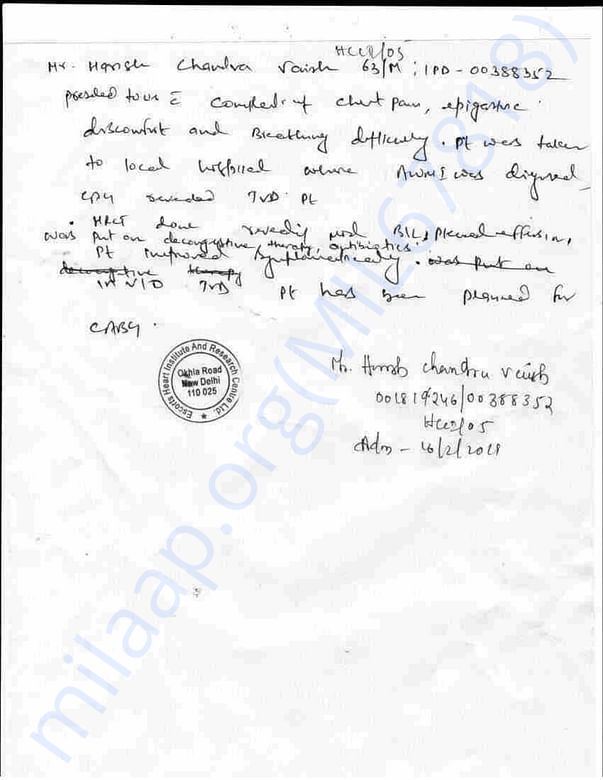 HCU2/05
Mr. Harish Chandra Vaish 63/M ; IPD - 00388352
presented to us c̄ complaint of chest pain, epigastric
discomfort and Breathing difficulty. Pt was taken
to local hospital where AWMI was diagnosed
revealed TVD. Pt
HRCT done mod B/L pleural effusion,
was put on decongestive therapy, antibiotics.
Pt improved symptomatically. was put on
decongestive therapy
in v/o TVD Pt has been planned for
CABG.
Escorts Heart Institute And Research Centre Ltd.
Okhla Road
New Delhi
110 025
Mr. Harish Chandra Vaish
00388352
Adm - 16/2/2018
milaap.org(MIL67818)